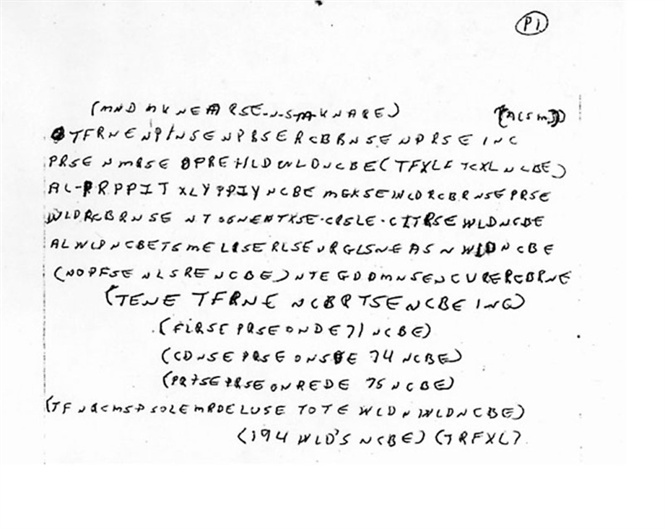 P1
(MND MKNEARSE-N-S-M-KNARE) (ACSM)
TFRNENPINSENPBSERCBBNSENPRSEINC
PRSENMRSEOPREHLDWLDNCBE(TFXLFTCXLNCBE)
AL-PRPPIT XLYPPIYNCBE MGKSEWLDRCBRNSEPRSE
WLDRCBRNSE NTSSNENTXSE-CRSLE-CITRSEWLDNCBE
ALWLDNCBETSMELRSERLSEURGLSNEASNWLDNCBE
(NOPFSENLSRENCBE)NTEGDDMNSENCURERCBRNE
(TENE TFRNE NCBRTSENCBEING)
(FLRSEPRSEONDE71NCBE)
(CDNSEPRSEONSDE74NCBE)
(PRTSEPRSEONREDE75NCBE)
(TFNRCMSPSOLEMRDELUSE TOTE WLDNWLDNCBE)
(194WLD'SNCBE)(TRFXL)